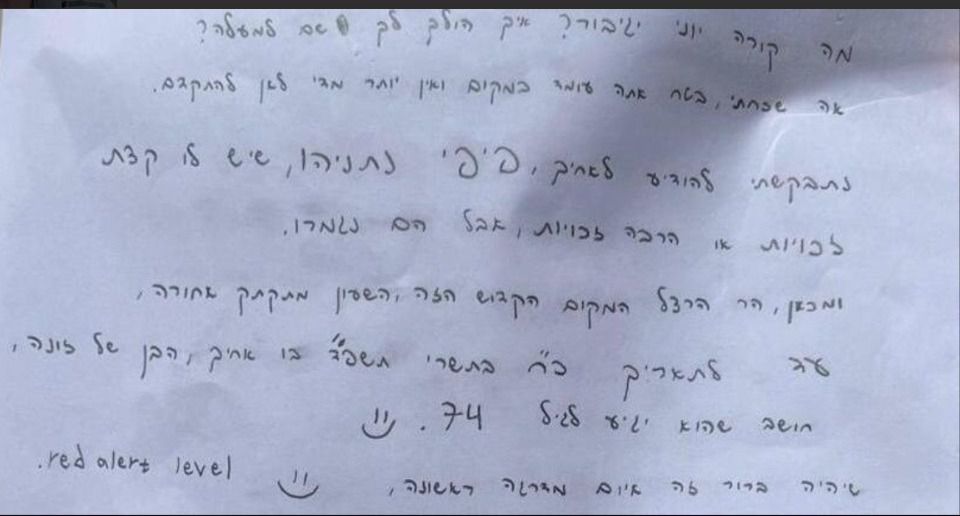 מה קורה יוני יגיבור? איך הולך לך שם למעלה?
אה שכחתי, בטח אתה עומד במקום ואין יותר מדי לאן להתקדם.
נתבקשתי להודיע לאחיך, פיפי נתניהו, שיש לו קצת
זכויות או הרבה זכויות, אבל הם נגמרו.
ומכאן, הר הרצל המקום הקדוש הזה, השעון מתקתק אחורה,
עד לתאריך כ״ח בתשרי תשפ״ד בו אחיך, הבן של זונה,
חושב שהוא יגיע לגיל 74.
שיהיה ברור זה איום מדרגה ראשונה, red alert level.